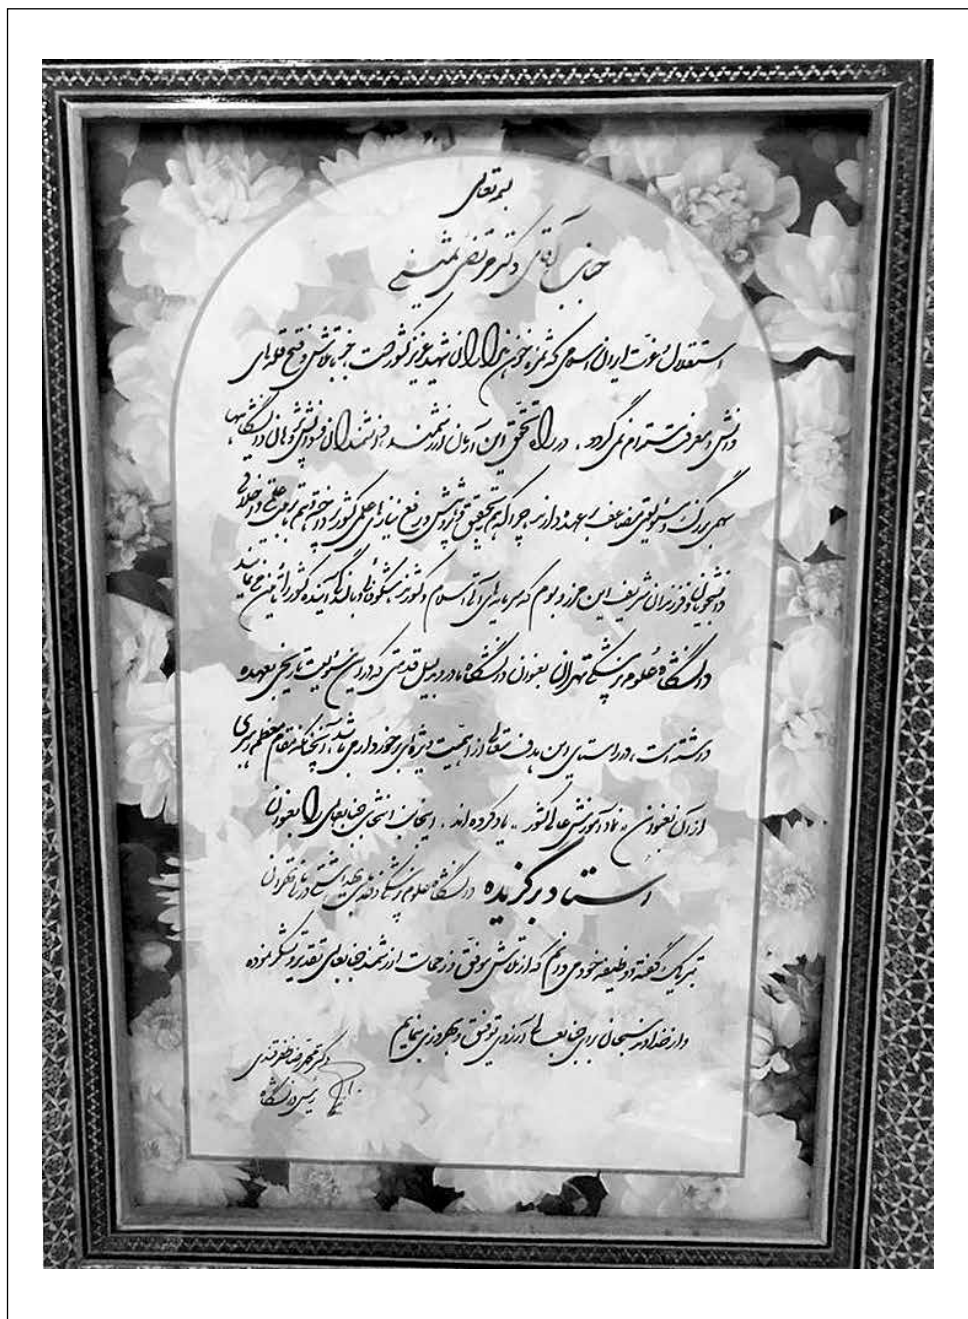 بسمه تعالی
جناب آقای دکتر مرتضی
استقلال و عزت ایران اسلامی که ثمره خون هزاران شهید عزیز کشور است، جز با تلاش و فتح قله‌های
دانش و معرفت مستدام نمی گردد. در راه تحقق این آرمان ارزشمند، دانشمندان و دانش پژوهان دانشگاهها
سهمی بزرگ و مسئولیتی مضاعف بعهده دارند، چرا که هم تحقیق و پژوهش در رفع نیازهای علمی کشور و هم تربیت علمی و اخلاقی
دانشجویان و فرزندان شریف این مرز و بوم که سرمایه‌های آتی اسلام و کشورند، شکوفائی و بالندگی آینده کشور را تامین می نمایند
دانشگاه علوم پزشکی تهران بعنوان دانشگاه مادر و بدلیل قدمتی که در این مسئولیت تاریخی بعهده
داشته است، در راستای این هدف متعالی از اهمیت ویژه‌ای برخوردار می باشد، آنچنانکه مقام معظم رهبری
از آن بعنوان «نماد آموزش عالی کشور» یاد کرده اند. اینجانب انتخاب جنابعالی را بعنوان
استاد برگزیده دانشگاه علوم پزشکی و خدمات بهداشتی درمانی تهران
تبریک گفته و وظیفه خود می دانم که از تلاش موفق و زحمات ارزشمند جنابعالی تقدیر و تشکر نموده
و از خداوند سبحان برای جنابعالی آرزوی توفیق و بهروزی بنمایم
دکتر محمدرضا ظفرقندی
رئیس دانشگاه